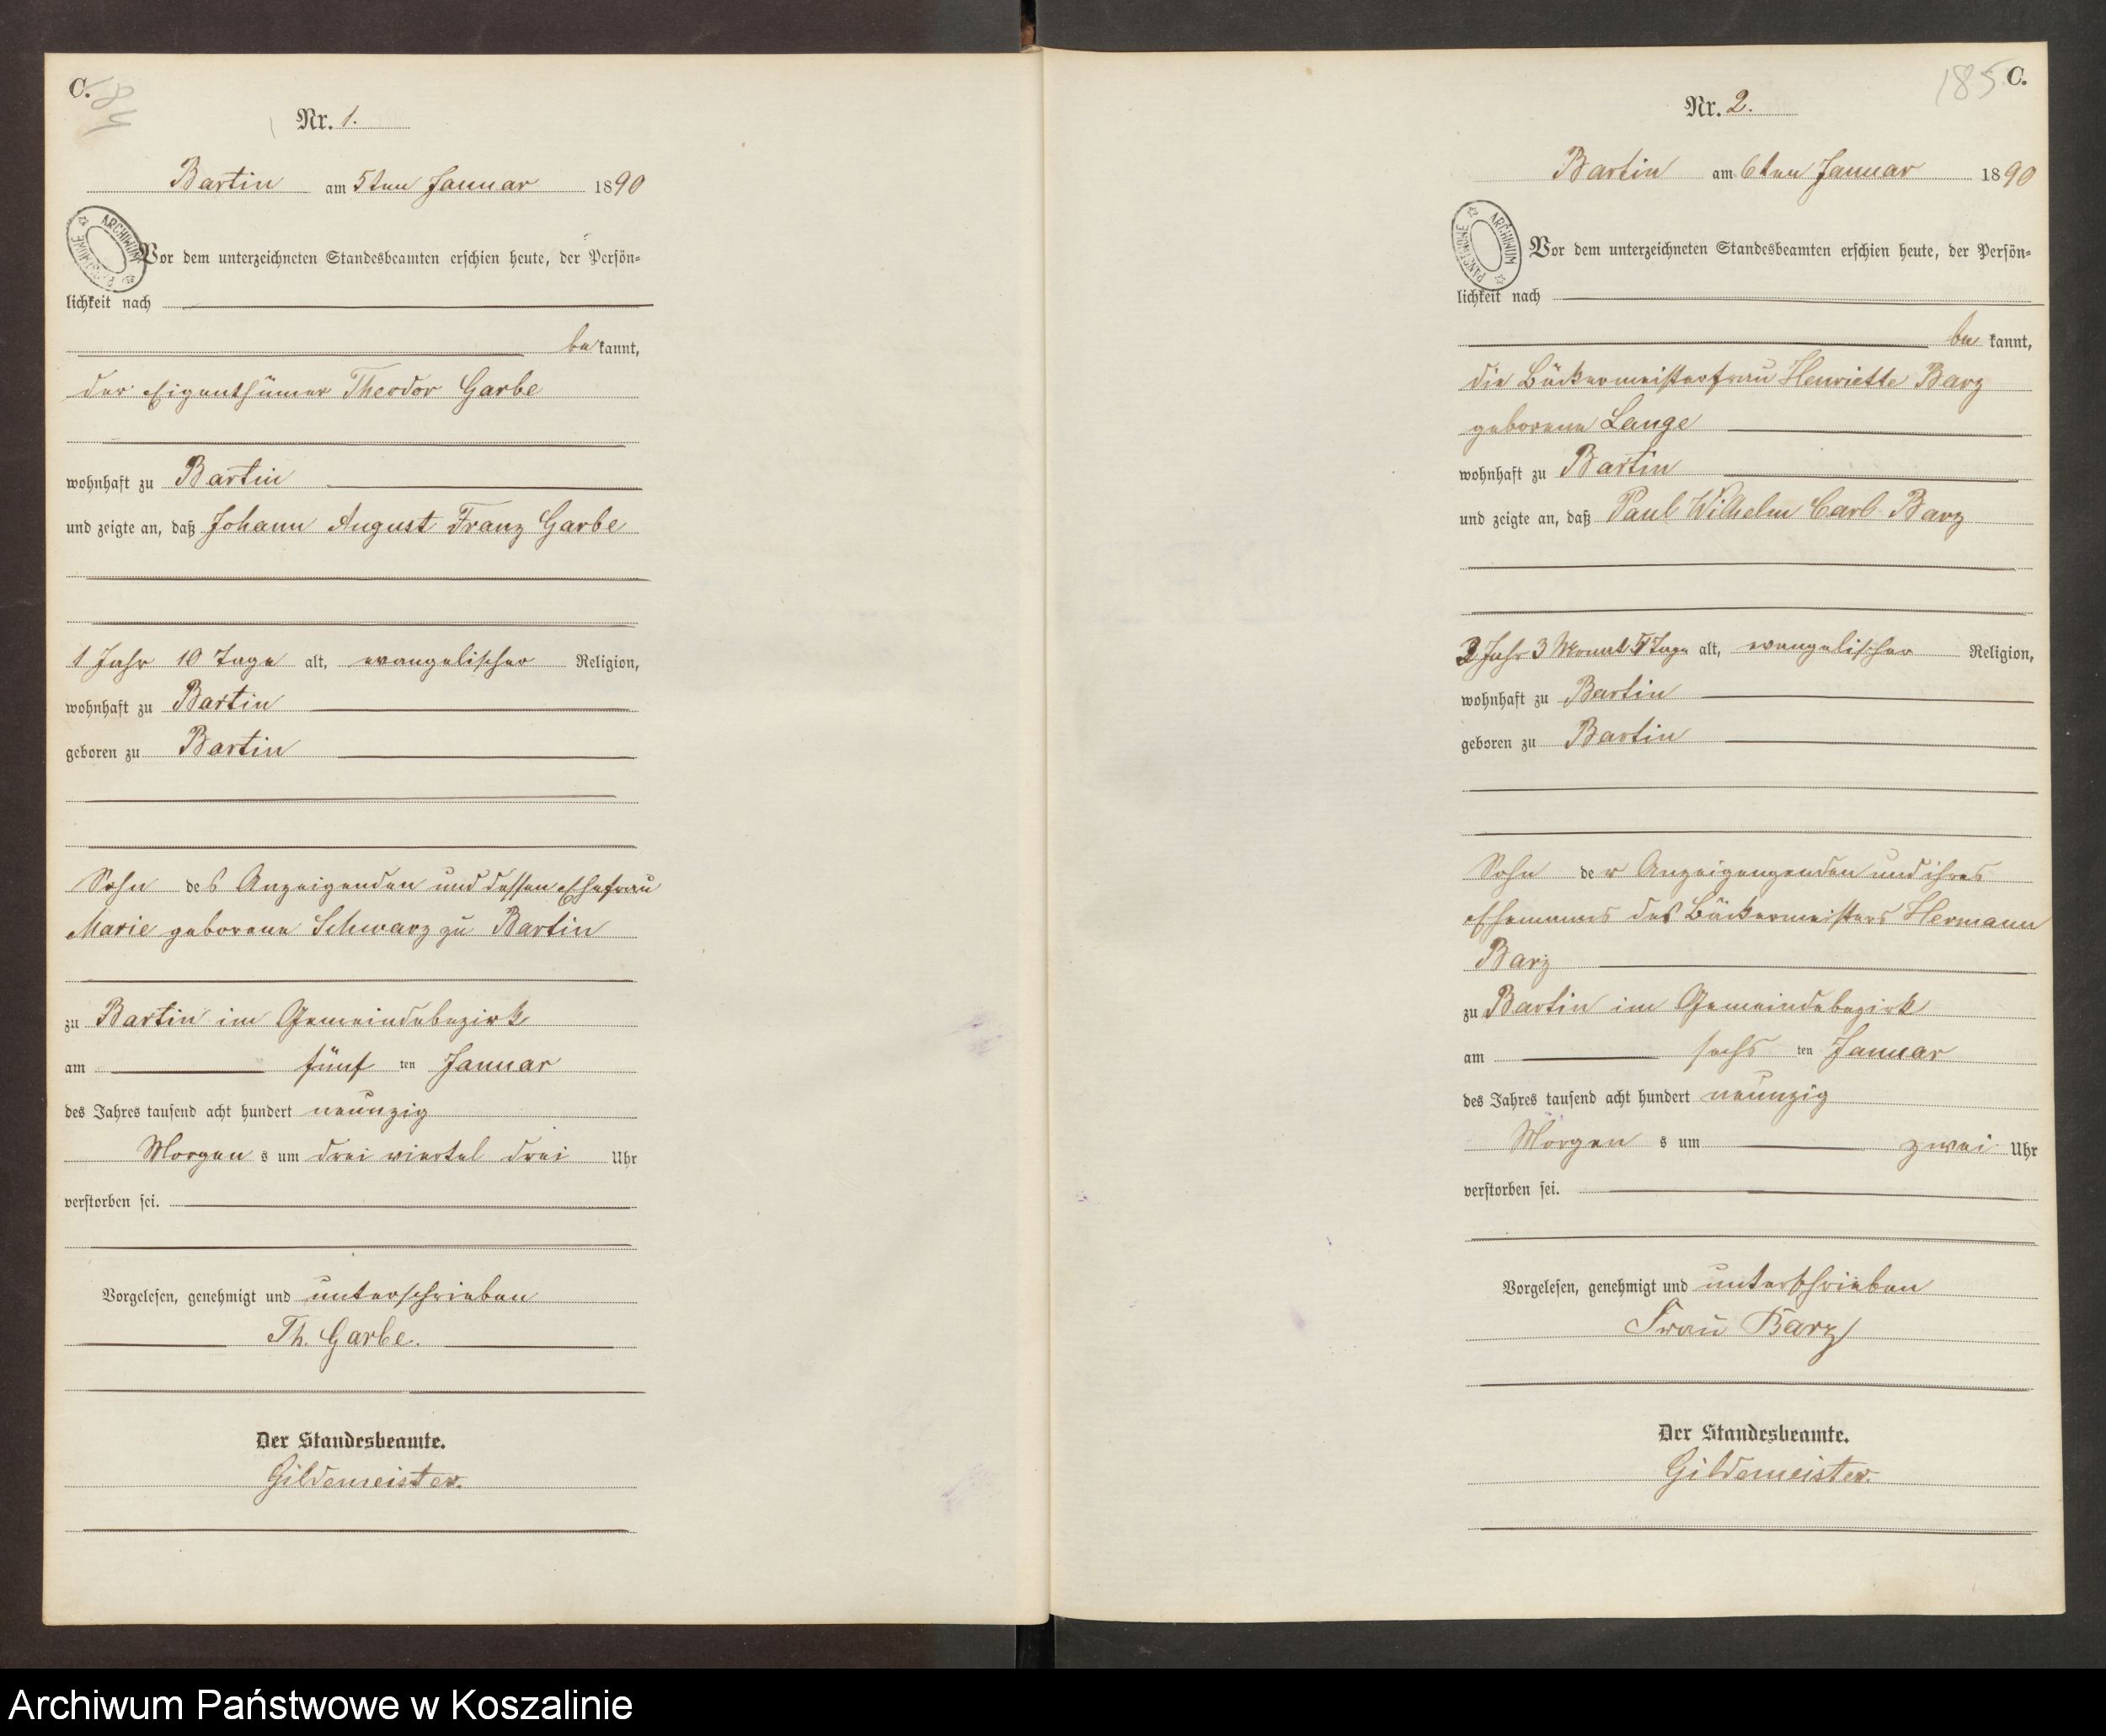 C.
184
Nr. 1.
Bartin am 5ten Januar 1890
ARCHIWUM PAŃSTWOWE
Vor dem unterzeichneten Standesbeamten erschien heute, der Persön-
lichkeit nach
be kannt,
der Eigenthümer Theodor Garbe
wohnhaft zu Bartin
und zeigte an, daß Johann August Franz Garbe
1 Jahr 10 Tage alt, evangelischer Religion,
wohnhaft zu Bartin
geboren zu Bartin
Sohn des Anzeigenden und dessen Ehefrau
Marie geborene Schwarz zu Bartin
zu Bartin im Gemeindebezirk
am fünf ten Januar
des Jahres tausend acht hundert neunzig
Morgen s um drei viertel drei Uhr
verstorben sei.
Vorgelesen, genehmigt und unterschrieben
Th. Garbe.
Der Standesbeamte.
Gildemeister.
185 C.
Nr. 2.
Bartin am 6ten Januar 1890
ARCHIWUM PAŃSTWOWE
Vor dem unterzeichneten Standesbeamten erschien heute, der Persön-
lichkeit nach
be kannt,
die Bäckermeisterfrau Henriette Barz
geborene Lange
wohnhaft zu Bartin
und zeigte an, daß Paul Wilhelm Carl Barz
Jahr 3 Monat Tage alt, evangelischer Religion,
wohnhaft zu Bartin
geboren zu Bartin
Sohn der Anzeigengenden und ihres
Ehemanns des Bäckermeisters Hermann
Barz
zu Bartin im Gemeindebezirk
am sechs ten Januar
des Jahres tausend acht hundert neunzig
Morgen s um zwei Uhr
verstorben sei.
Vorgelesen, genehmigt und unterschrieben
Frau Barz
Der Standesbeamte.
Gildemeister.
Archiwum Państwowe w Koszalinie